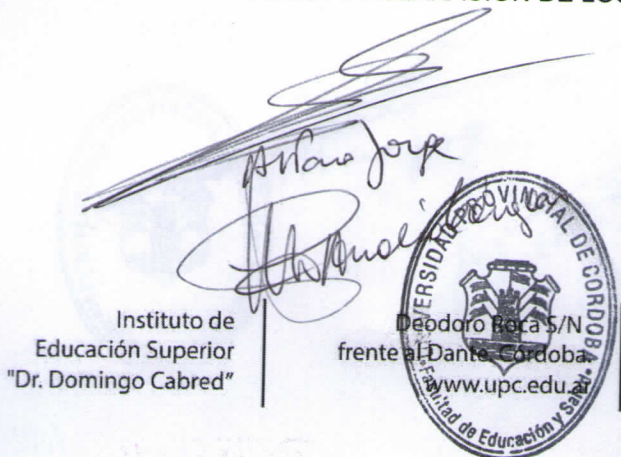 Jorge
Instituto de
Educación Superior
"Dr. Domingo Cabred"
Deodoro Roca S/N
frente al Dante, Córdoba.
www.upc.edu.ar
UNIVERSIDAD PROVINCIAL DE CORDOBA
Facultad de Educación y Salud